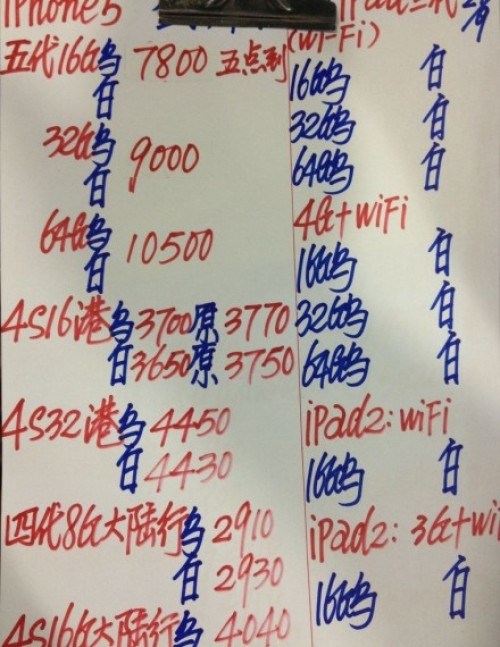 iPhone5
五代16G乌 7800 五点到
白
32G乌
白 9000
64G乌
白 10500
4S16港乌3700原3770
白3650原3750
4S32港乌4450
白4430
四代8G大陆行乌2910
白2930
4S16G大陆行乌4040
iPad三代
(Wi-Fi)
16G乌 白
32G乌 白
64G乌 白
4G+WiFi
16G乌 白
32G乌 白
64G乌 白
iPad2:WiFi
16G乌 白
iPad2:3G+Wi
16G乌 白